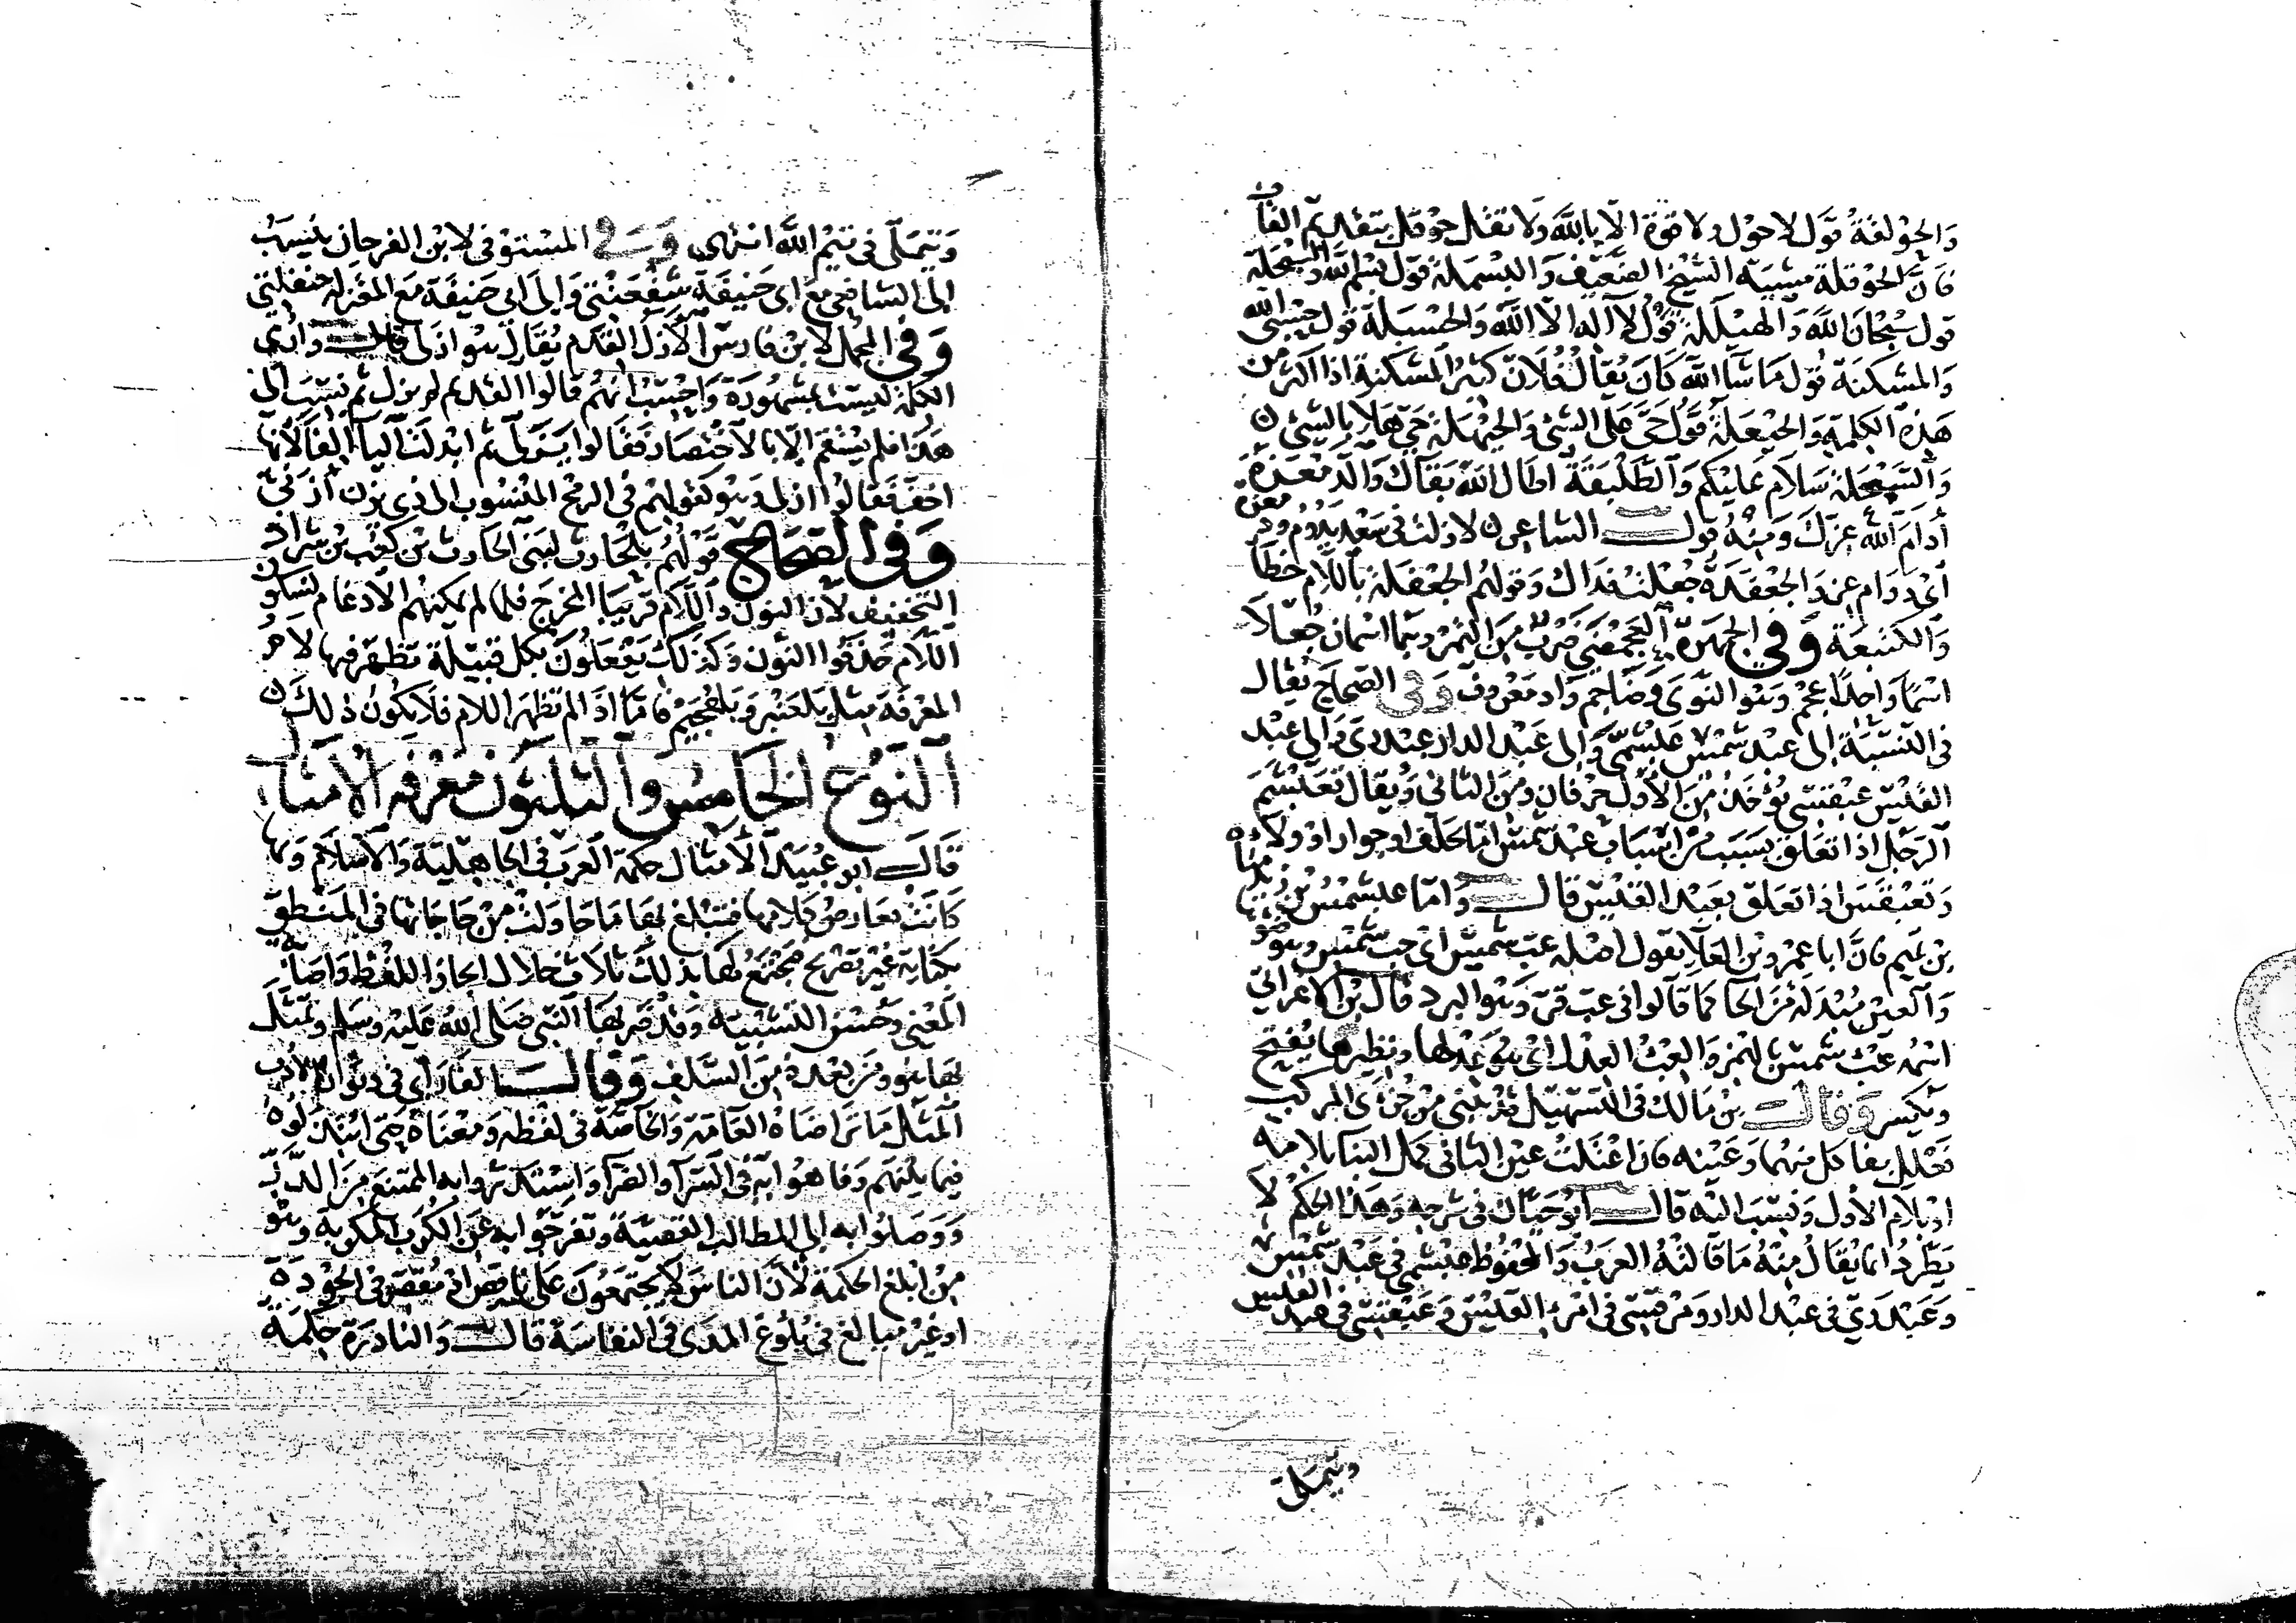 والحولقة قول لا حول ولا قوة الا بالله ولا تقل حوقل بتقديم القاف
فان الحوقلة مشية الشيخ الضعيف والبسملة قول بسم الله والسبحلة
قول سبحان الله والهيللة قول لا اله الا الله والحسبلة قول حسبي الله
والمشكنة قول ما شا الله كان يقال فلان كثير المشكنة اذا اكثر من
هذه الكلمة والحيعلة قول حي على الشي والحيهلة حي هلا بالشي
والسمعلة سلام عليكم والطلبقة اطال الله بقاك والدمعزة
أدام الله عزك ومنه قول الشاعر لا زلت في سعد يدوم ودمعزة
أي دوام عز والجعفدة جعلت فداك وقولهم الجعفلة باللام خطأ
والكنبعة وفي الجمهرة العجمضى ضرب من التمر وهما اسمان جعلا
اسما واحدا عجم وهو النوى وضاجم واد معروف وفي الصحاح يقال
في النسبة الى عبد شمس عبشمي والى عبد الدار عبدري والى عبد
القيس عبقسي يؤخذ من الأول حرفان ومن الثاني ويقال تعبشم
الرجل اذا تعلق بسبب من اسباب عبد شمس اما بحلف او جوار او ولاء
وتعبقس اذا تعلق بعبد القيس قال واما عبشمس بن زيد مناة
بن تميم فان ابا عمرو بن العلا يقول اصله عب شمس اي حب شمس وهو ضوؤها
والعين مبدلة من الحا كما قالوا في عب قر وهو البرد قال بن الاعرابي
اسمه عبء شمس بالهمز والعبء العدل اي هو عدلها ونظيرها يفتح
ويكسر وقال بن مالك في التسهيل قد يبنى من جزءى المركب
فعلل بفا كل منهما وعينه فان اعتلت عين الثاني كمل البنا بلامه
او بلام الأول ونسب اليه قال ابو حيان في شرحه وهذا الحكم لا
يطرد انما يقال منه ما قالته العرب والمحفوظ عبشمي في عبد شمس
وعبدري في عبد الدار ومرقسي في امرئ القيس وعبقسي في عبد القيس
وتيملي
وتيملي في تيم الله انتهى وفي المستوفى لابن الفرحان ينسب
الى الشافعي مع ابي حنيفة شفعنتي والى ابي حنيفة مع المعتزلة حنفلتي
وفي المجمل لابن فارس الأزل القدم يقال هو ازلي قال وارى
الكلمة ليست بمشهورة واحسب انهم قالوا القديم لم يزل ثم نسب الى
هذا فلم يستقم الا بالاختصار فقالوا يزلي ثم ابدلت اليا الفا لأنها
اخف فقالوا ازلي وهو كقولهم في الرمح المنسوب الى ذي يزن أزنى
وفي الصحاح قولهم بلحارث لبني الحارث بن كعب من شواذ
التخفيف لأن النون واللام قريبا المخرج فلما لم يمكنهم الادغام لسكون
اللام حذفوا النون وكذلك يفعلون بكل قبيلة تظهر فيها لام
المعرفة مثل بلعنبر وبلهجيم فاما اذا لم تظهر اللام فلا يكون ذلك
النوع الخامس والثلثون معرفة الامثال
قال ابو عبيد الأمثال حكمة العرب في الجاهلية والأسلام وبها
كانت تعارض كلامها فتبلغ بها ما حاولت من حاجاتها في المنطق
بكناية غير تصريح فيجتمع لها بذلك ثلاث خلال ايجاز اللفظ واصابة
المعنى وحسن التشبيه وقد ضربها النبي صلى الله عليه وسلم وتمثل
بها هو ومن بعده من السلف وقال الفارابي في ديوان الأدب
المثل ما تراضاه العامة والخاصة في لفظه ومعناه حتى ابتذلوه
فيما بينهم وفاهوا به في السرا والضرا واستدروا به الممتنع من الدر
ووصلوا به الى المطالب القصية وتفرجوا به عن الكرب المكربة وهو
من ابلغ الحكمة لأن الناس لا يجتمعون على ناقص او مقصر في الجودة
او غير مبالغ في بلوغ المدى في النفاسة قال والنادرة حكمة